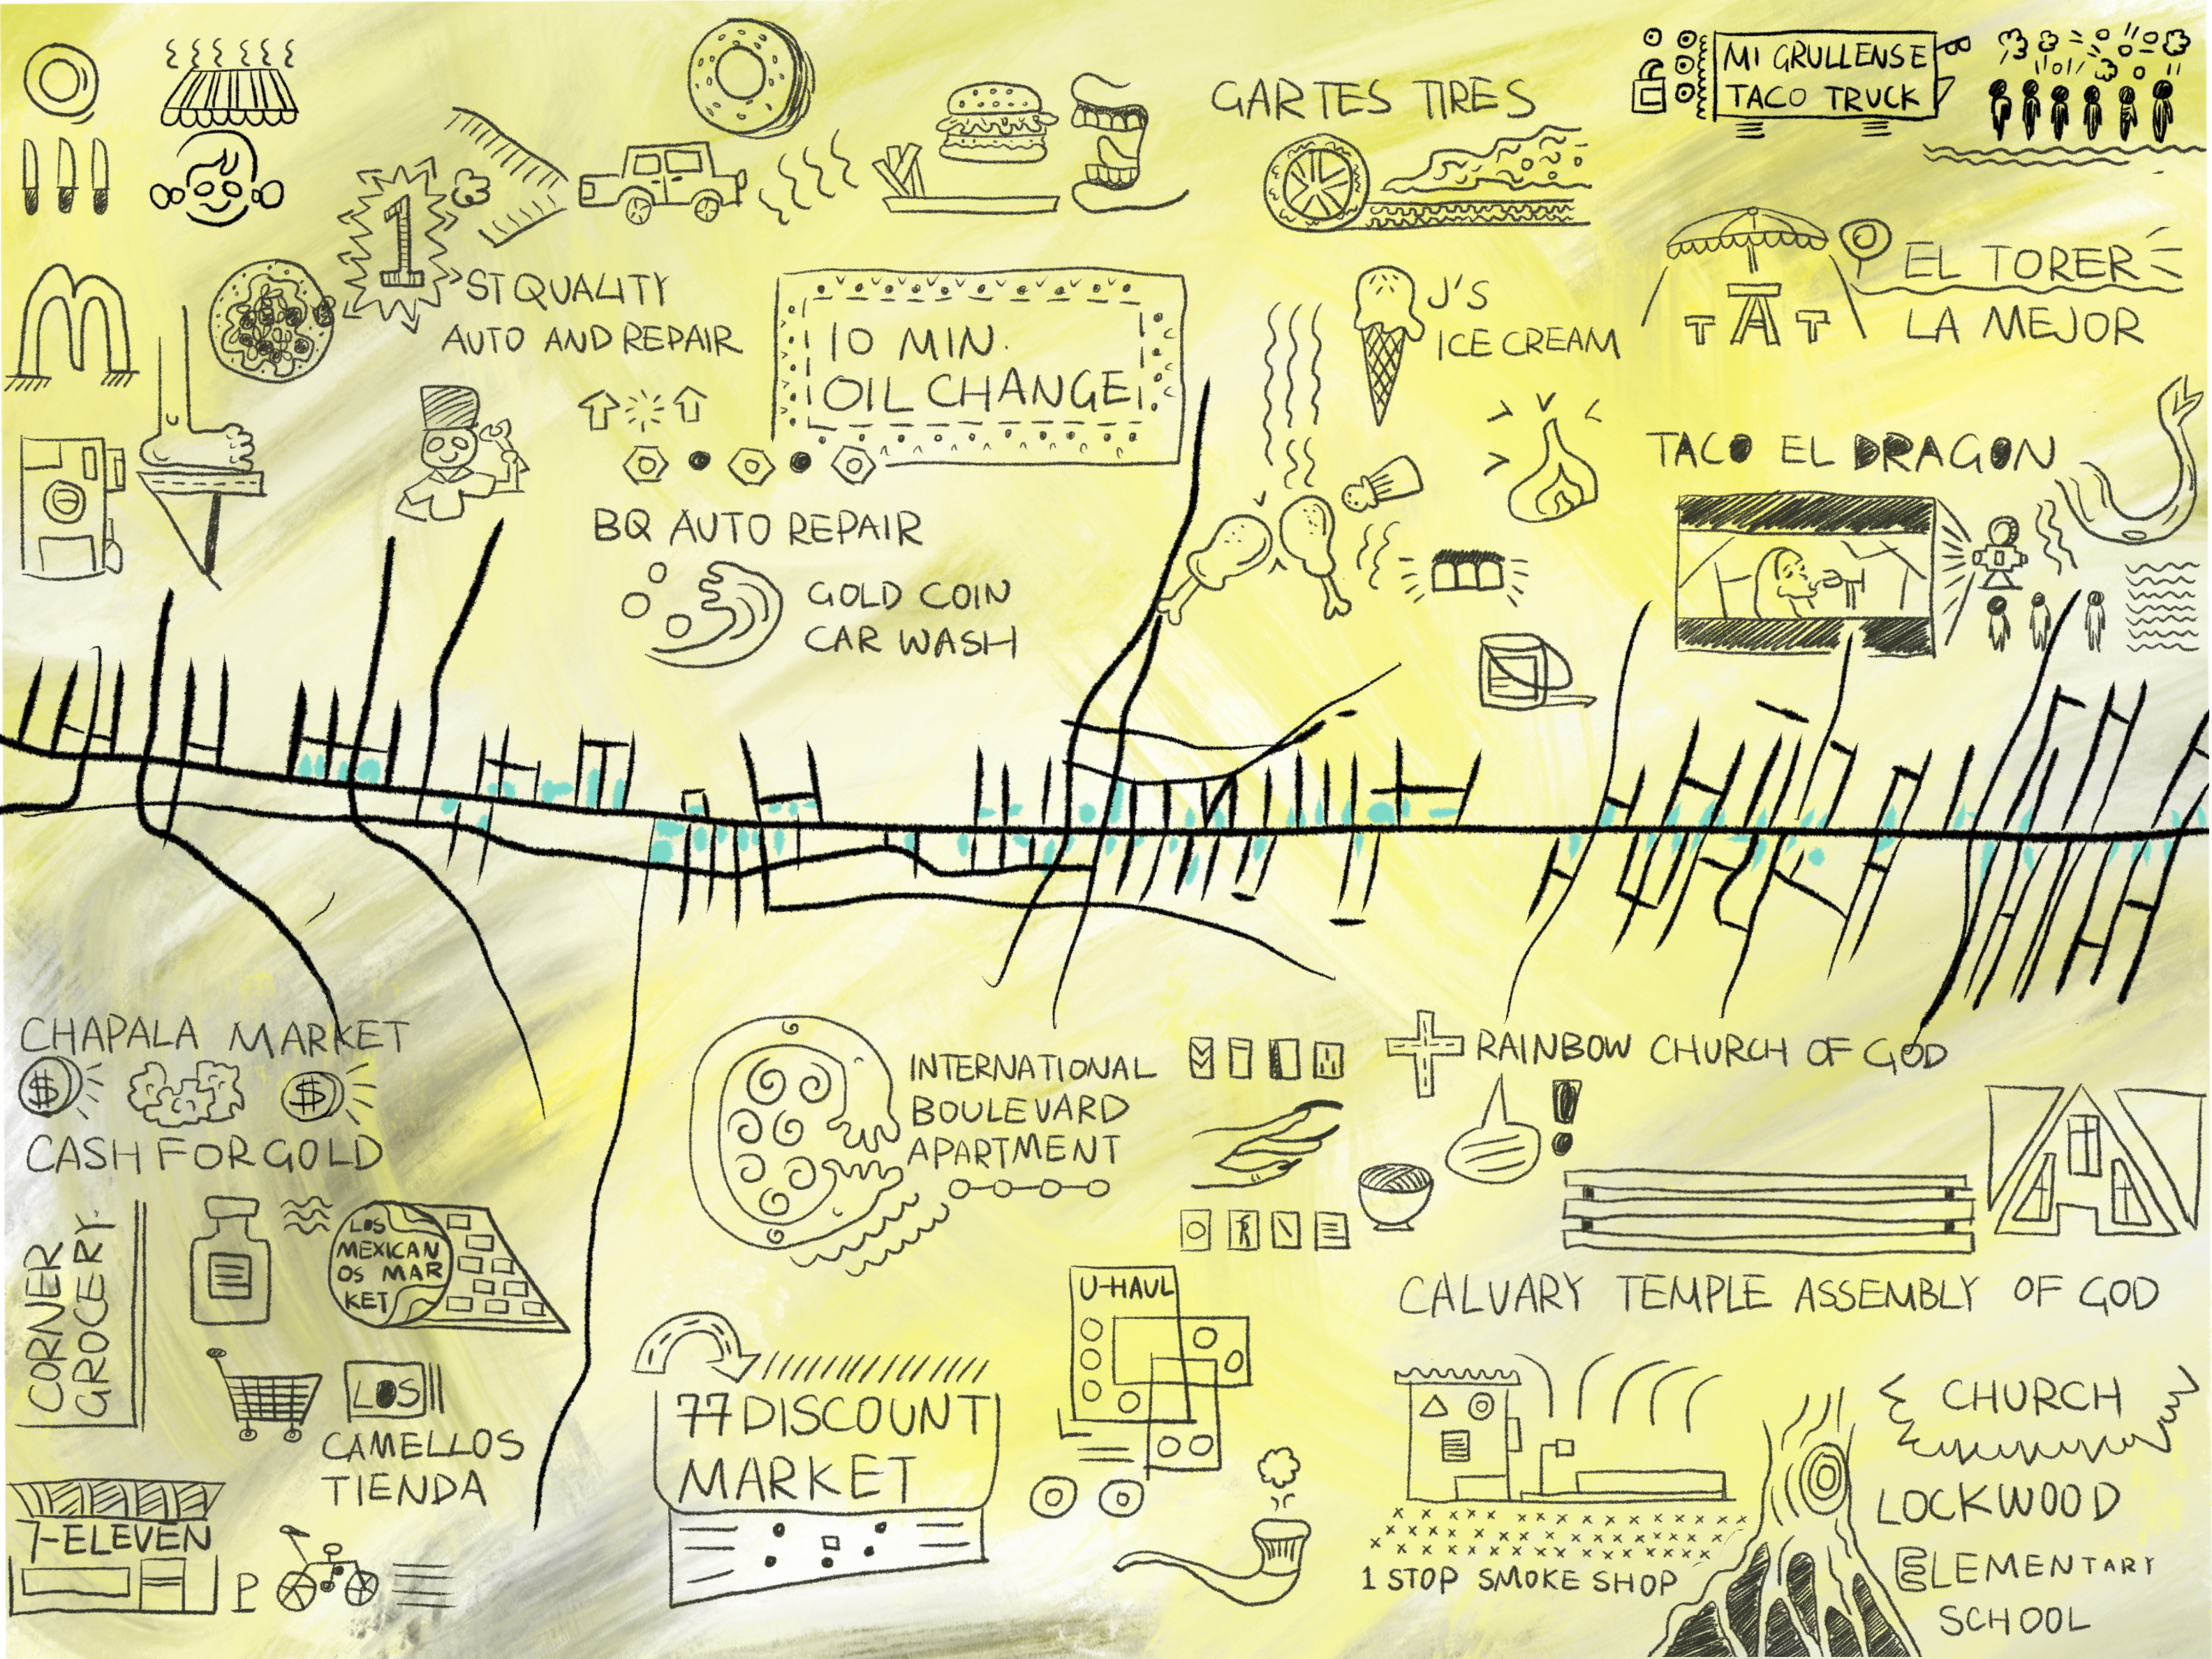 MI GRULLENSE
TACO TRUCK
GARTES TIRES
1
ST QUALITY
AUTO AND REPAIR
10 MIN.
OIL CHANGE
J'S
ICE CREAM
EL TORER
LA MEJOR
TACO EL DRAGON
BQ AUTO REPAIR
GOLD COIN
CAR WASH
CHAPALA MARKET
$ $
CASH FOR GOLD
CORNER
GROCERY.
LOS
MEXICAN
OS MAR
KET
LOS
CAMELLOS
TIENDA
7-ELEVEN
P
INTERNATIONAL
BOULEVARD
APARTMENT
U-HAUL
77 DISCOUNT
MARKET
RAINBOW CHURCH OF GOD
CALVARY TEMPLE ASSEMBLY OF GOD
1 STOP SMOKE SHOP
CHURCH
LOCKWOOD
ELEMENTARY
SCHOOL